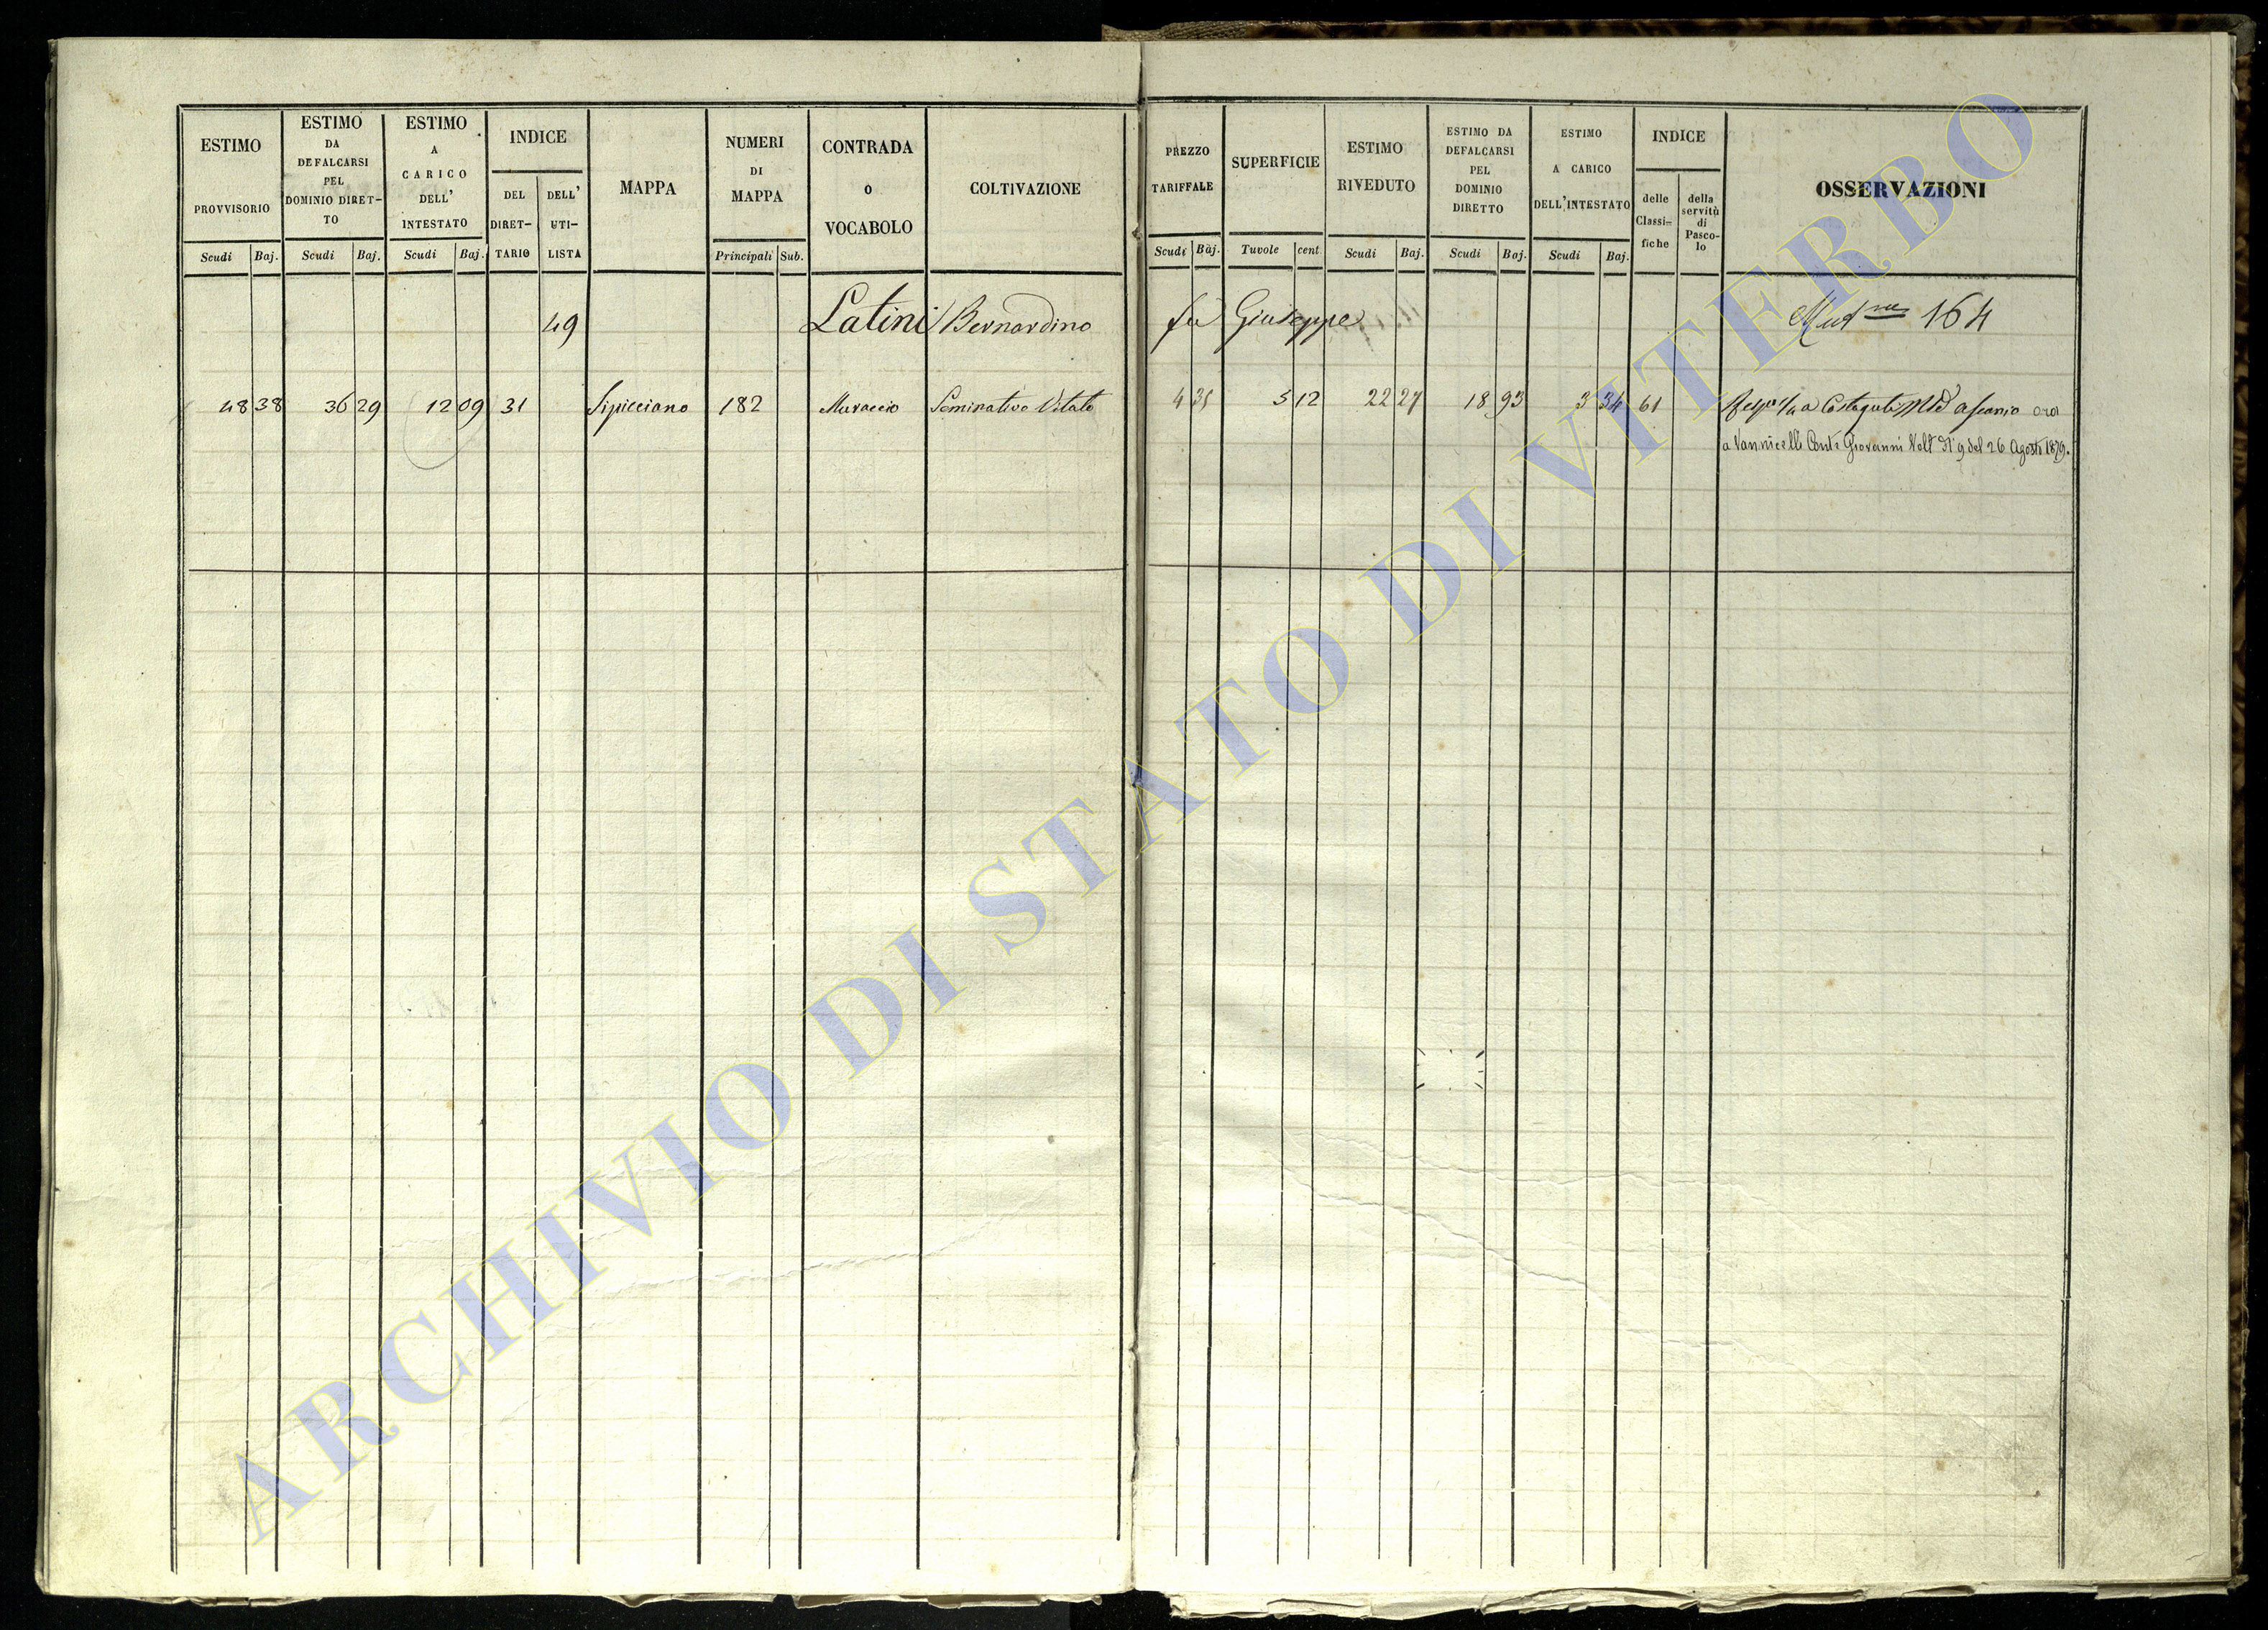 ESTIMO PROVVISORIO
ESTIMO DA DEFALCARSI PEL DOMINIO DIRET-TO
ESTIMO A CARICO DELL' INTESTATO
INDICE
DEL DIRET-TARIO
DELL' UTI-LISTA
MAPPA
NUMERI DI MAPPA
CONTRADA O VOCABOLO
COLTIVAZIONE
PREZZO TARIFFALE
SUPERFICIE
ESTIMO RIVEDUTO
ESTIMO DA DEFALCARSI PEL DOMINIO DIRETTO
ESTIMO A CARICO DELL'INTESTATO
INDICE
delle Classi-fiche
della servitù di Pasco-lo
OSSERVAZIONI
Scudi Baj. Scudi Baj. Scudi Baj. Principali Sub. Scudi Baj. Tavole cent. Scudi Baj. Scudi Baj. Scudi Baj.
49 Latini Bernardino fu Giuseppe 164
48 38 36 29 12 09 31 Sipicciano 182 Muraccio Seminativo Vitato 4 35 5 12 22 27 18 93 3 34 61 a Costaguti ascanio ora
a Vannicelli Conte Giovanni Volt. N° 9 del 26 Agosto 1879.
ARCHIVIO DI STATO DI VITERBO